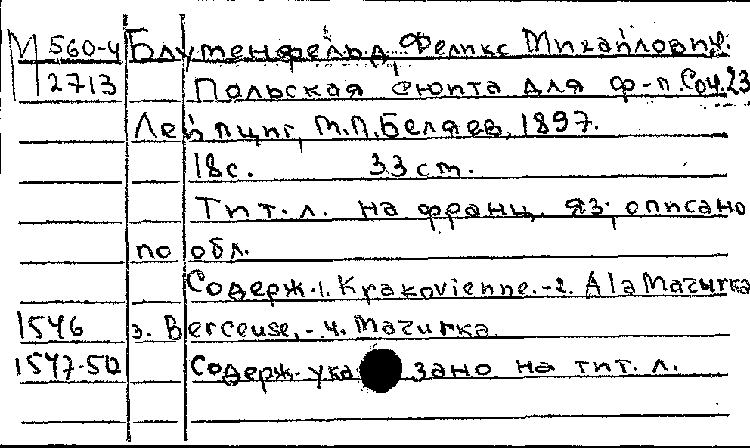 М 560-4 Блуменфельд, Феликс Михайлович.
2713 Польская сюита для ф-п. Соч. 23
Лейпциг, М.П. Беляев, 1897.
18 с. 33 cm.
Тит. л. на франц. яз; описано
по обл.
Содерж. 1. Krakovienne. - 2. A la Mazurka
1546 3. Berceuse. - 4. Mazurka.
1547-50 Содерж. указано на тит. л.